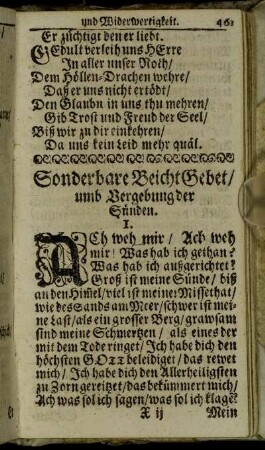 und Widerwertigkeit. 461
Er züchtigt den er liebt.
GEdult verleih uns HErre
In aller unser Noth/
Dem Höllen-Drachen wehre/
Daß er uns nicht ertödt/
Den Glaubn in uns thu mehren/
Gib Trost und Freud der Seel/
Biß wir zu dir einkehren/
Da uns kein Leid mehr quäl.
Sonderbare Beicht Gebet/
umb Vergebung der
Sünden.
I.
ACh weh mir/ Ach weh
mir/ Was hab ich gethan?
Was hab ich außgerichtet?
Groß ist meine Sünde/ biß
an den Him̃el/ viel ist meiner Missethat/
wie des Sands am Meer/ schwer ist mei-
ne Last/ als ein grosser Berg/ grawsam
sind meine Schmertzen/ als eines der
mit dem Tode ringet/ Ich habe dich den
höchsten GOtt beleidiget/ das rewet
mich/ Ich habe dich den Allerheiligsten
zu Zorn gereitzet/ das bekümmert mich/
Ach was sol ich sagen/ was sol ich klagẽ?
X ij Mein